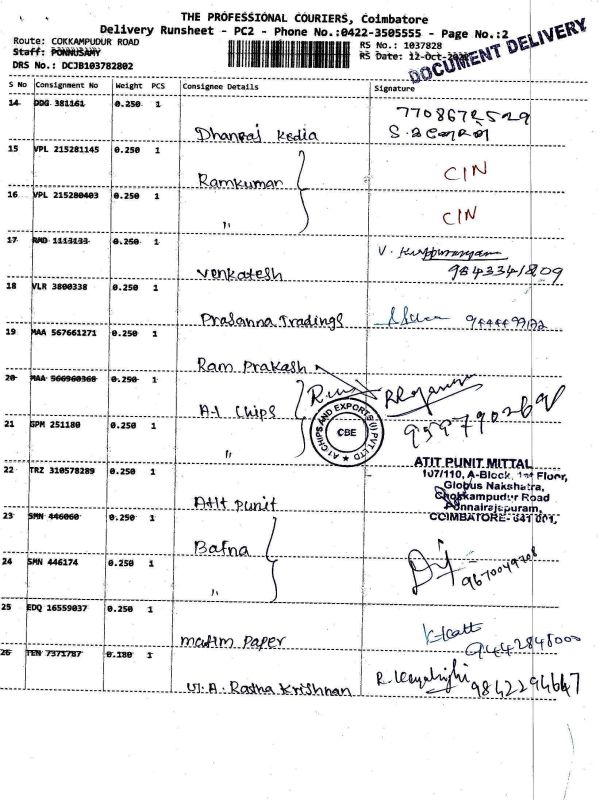 THE PROFESSIONAL COURIERS, Coimbatore
Delivery Runsheet - PC2 - Phone No.:0422-3505555 - Page No.:2
Route: COKKAMPUDUR ROAD
RS No.: 1037828
Staff: PONNUSAMY
RS Date: 12-Oct-
DRS No.: DCJB103782802
DOCUMENT DELIVERY
S No Consignment No Weight PCS Consignee Details Signature
14 DDG 381161 0.250 1
Dhanraj Kedia
7708672529
15 VPL 215281145 0.250 1
Ramkumar
CIN
16 VPL 215280403 0.250 1
"
CIN
17 RMD 1113133 0.250 1
Venkatesh
9843341809
18 VLR 3800338 0.250 1
Prasanna Tradings
19 MAA 567661271 0.250 1
Ram Prakash
20 MAA 566960360 0.250 1
A1 Chips
A1 CHIPS AND EXPORTS (I) PVT LTD
CBE
21 GPM 251180 0.250 1
"
22 TRZ 310578289 0.250 1
Atit punit
ATIT PUNIT MITTAL
107/110, A-Block, 1st Floor,
Globus Nakshatra,
Chokkampudur Road
Ponnairajapuram,
COIMBATORE- 641 001.
23 SMN 446060 0.250 1
Bafna
24 SMN 446174 0.250 1
"
9670049708
25 EDQ 16559037 0.250 1
Paper
9442848000
26 TEN 7371787 0.180 1
Radha Krishnan
9842294647